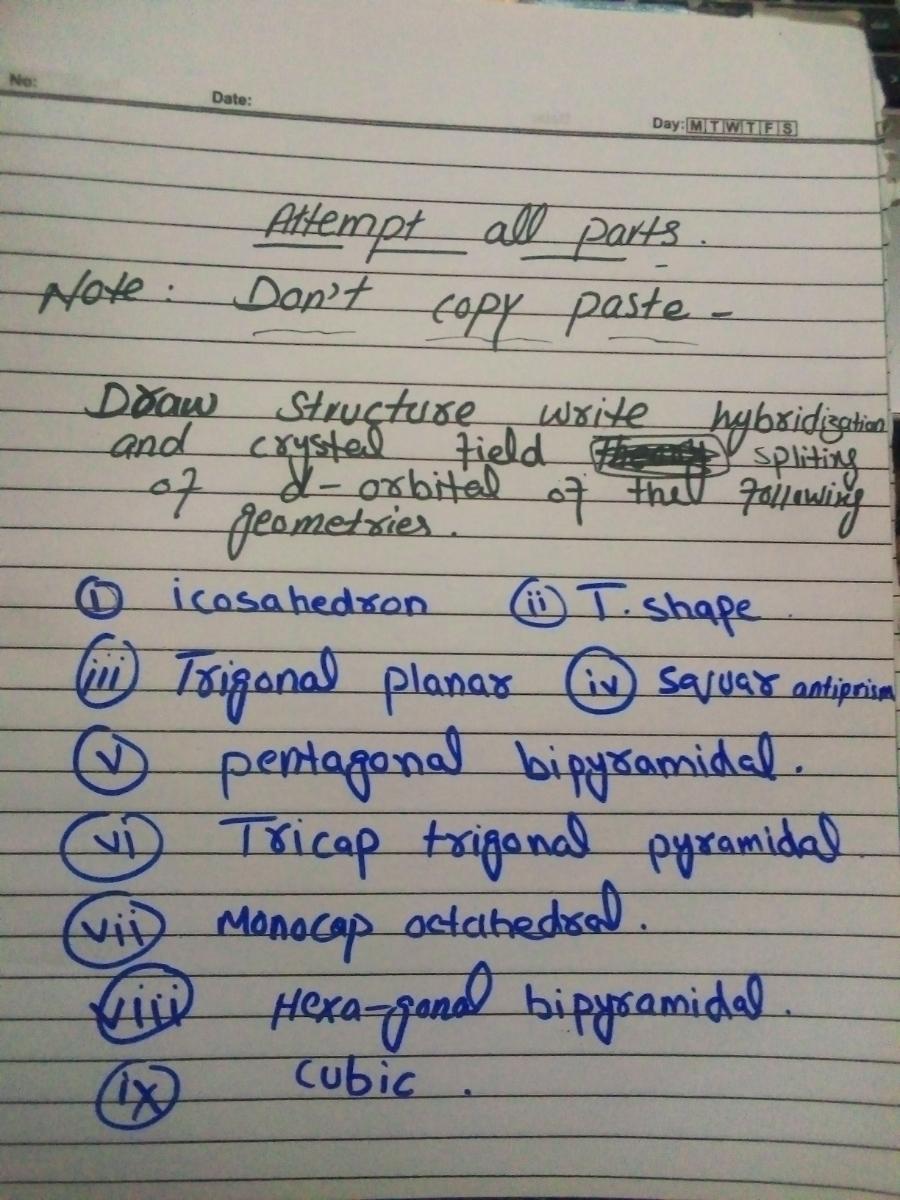 No:
Date:
Day: M T W T F S
Attempt all parts.
Note: Don't copy paste -
Draw structure write hybridization
and crystal field spliting
of d-orbital of the following
geometries.
i icosahedron ii T. shape
iii Trigonal planar iv squar antiprism
v pentagonal bipyramidal.
vi Tricap trigonal pyramidal
vii Monocap octahedral.
viii Hexa-gonal bipyramidal.
ix cubic.